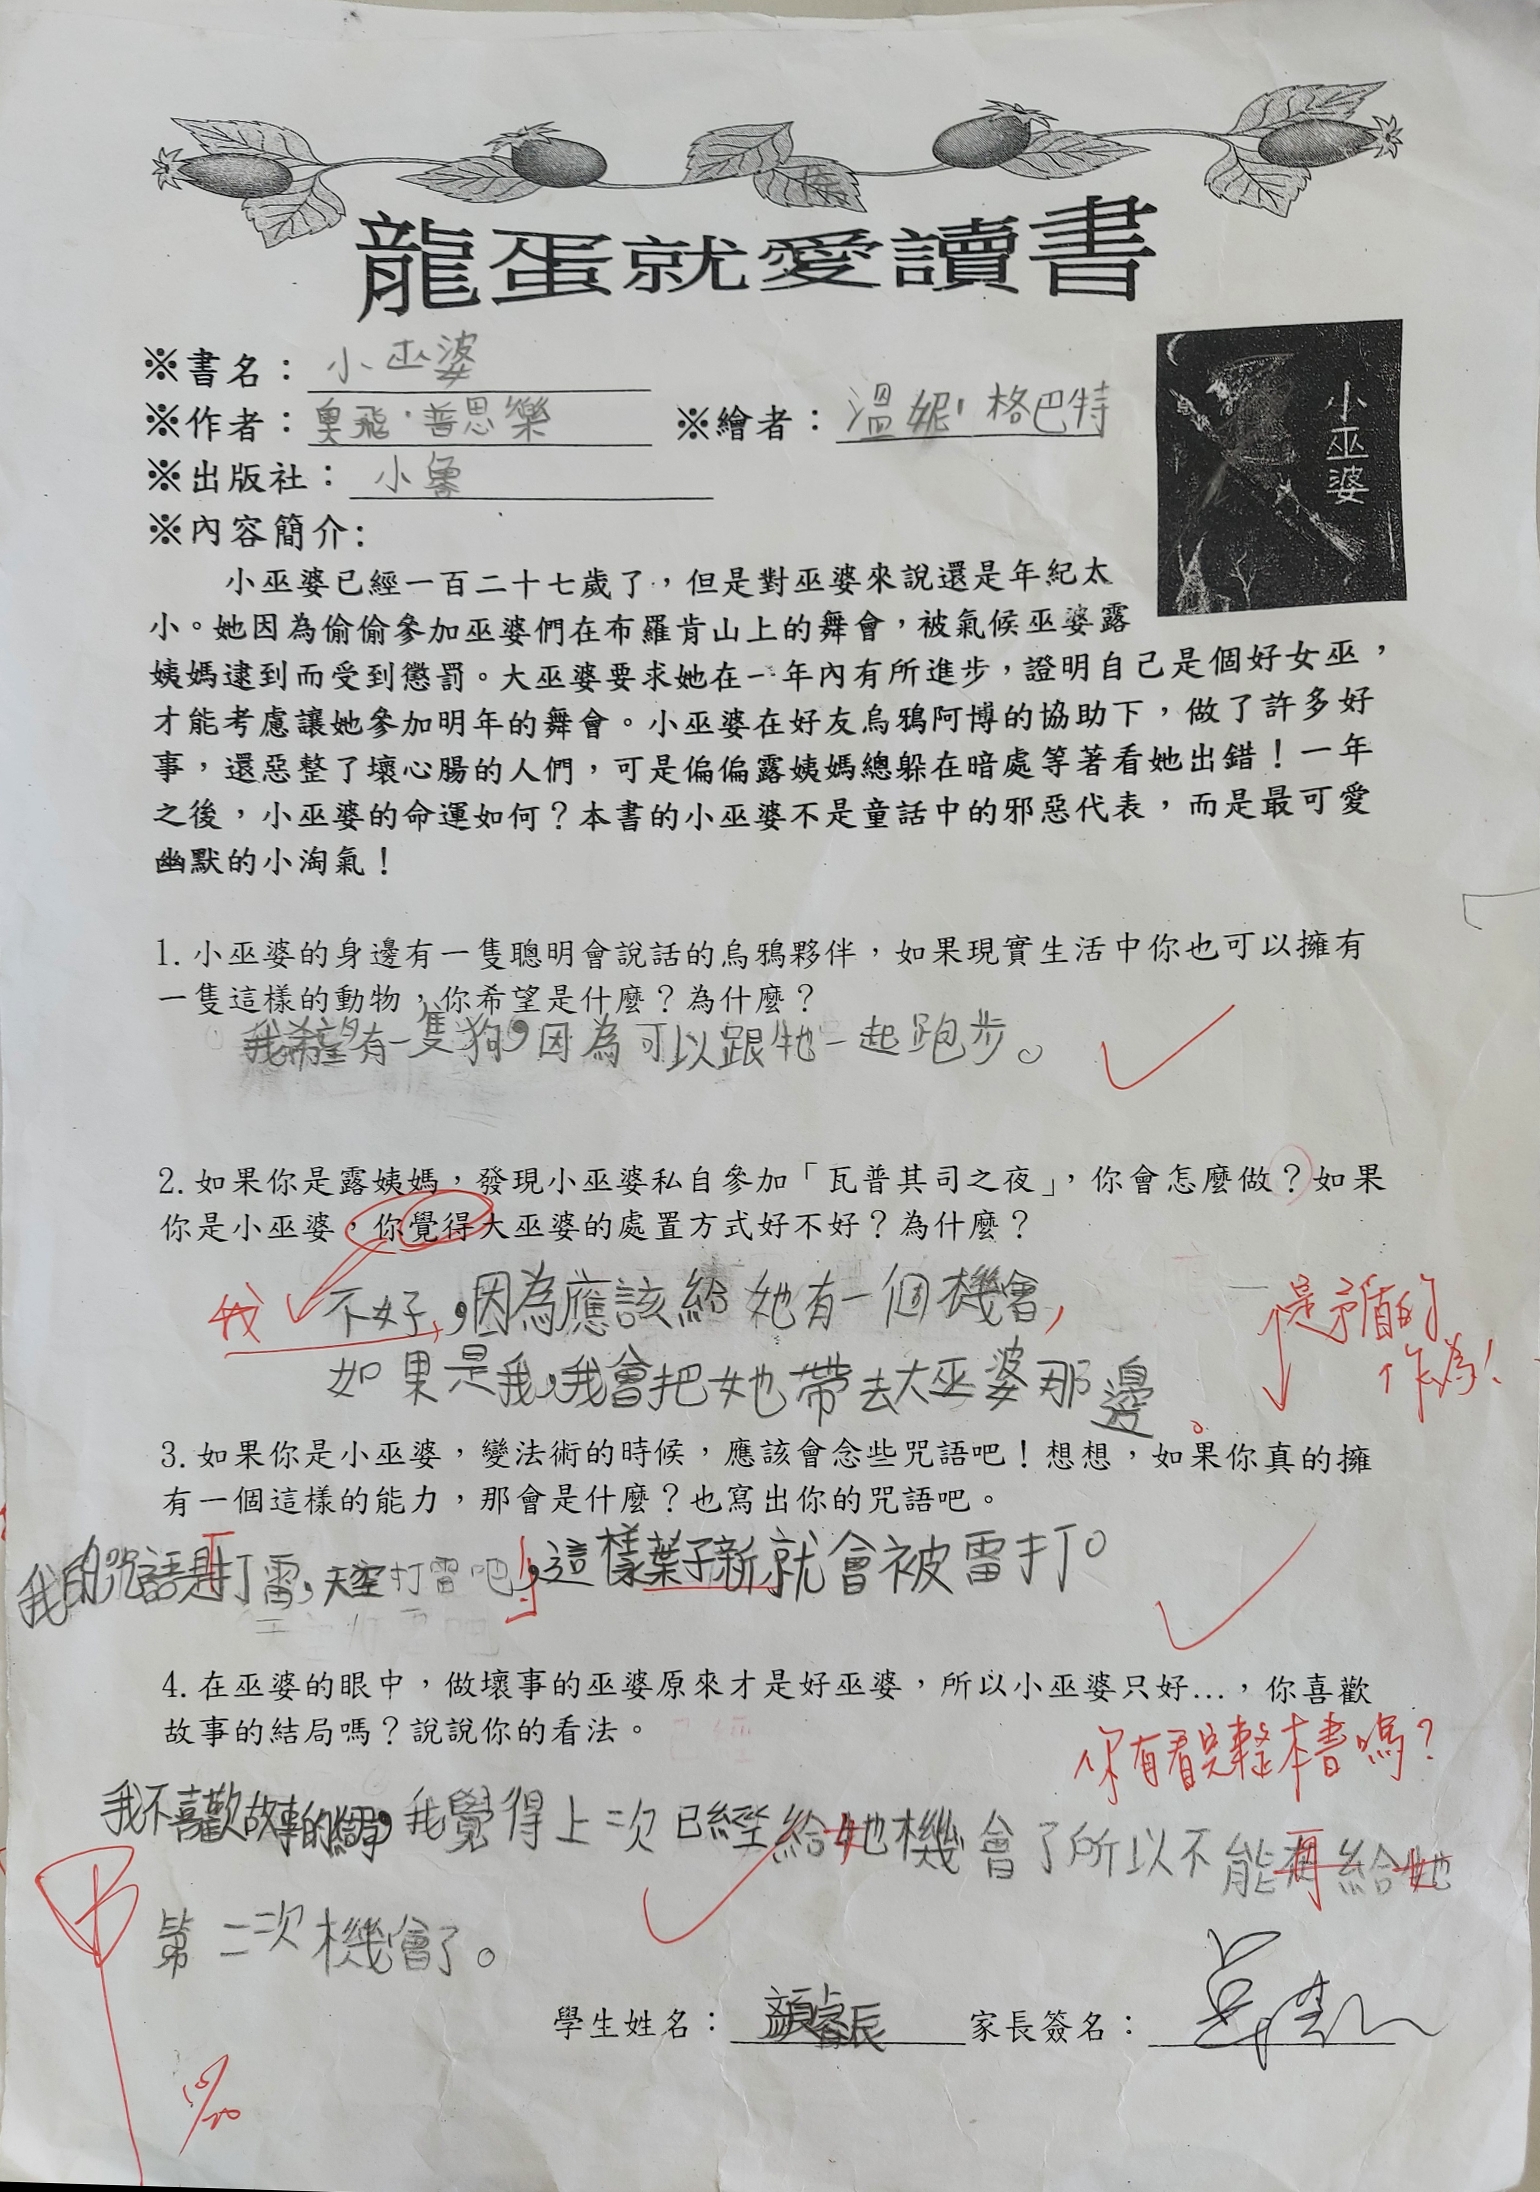 龍蛋就愛讀書
※書名：小巫婆
※作者：奧飛·普思樂 ※繪者：溫妮·格巴特
小巫婆
※出版社：小魯
※內容簡介：
小巫婆已經一百二十七歲了，但是對巫婆來說還是年紀太
小。她因為偷偷參加巫婆們在布羅肯山上的舞會，被氣候巫婆露
姨媽逮到而受到懲罰。大巫婆要求她在一年內有所進步，證明自己是個好女巫，
才能考慮讓她參加明年的舞會。小巫婆在好友烏鴉阿博的協助下，做了許多好
事，還惡整了壞心腸的人們，可是偏偏露姨媽總躲在暗處等著看她出錯！一年
之後，小巫婆的命運如何？本書的小巫婆不是童話中的邪惡代表，而是最可愛
幽默的小淘氣！
1. 小巫婆的身邊有一隻聰明會說話的烏鴉夥伴，如果現實生活中你也可以擁有
一隻這樣的動物，你希望是什麼？為什麼？
我希望有一隻狗，因為可以跟牠一起跑步。
2. 如果你是露姨媽，發現小巫婆私自參加「瓦普其司之夜」，你會怎麼做？如果
你是小巫婆，你覺得大巫婆的處置方式好不好？為什麼？
我 不好，因為應該給她有一個機會，
是矛盾的
作為！
如果是我，我會把她帶去大巫婆那邊。
3. 如果你是小巫婆，變法術的時候，應該會念些咒語吧！想想，如果你真的擁
有一個這樣的能力，那會是什麼？也寫出你的咒語吧。
我的咒語是「打雷，天空打雷吧！」，這樣葉子新就會被雷打。
4. 在巫婆的眼中，做壞事的巫婆原來才是好巫婆，所以小巫婆只好…，你喜歡
故事的結局嗎？說說你的看法。
你有看完整本書嗎？
我不喜歡故事的結局，我覺得上次已經給她機會了所以不能再給她
第二次機會了。
甲
學生姓名：顏睿辰 家長簽名：
10/20